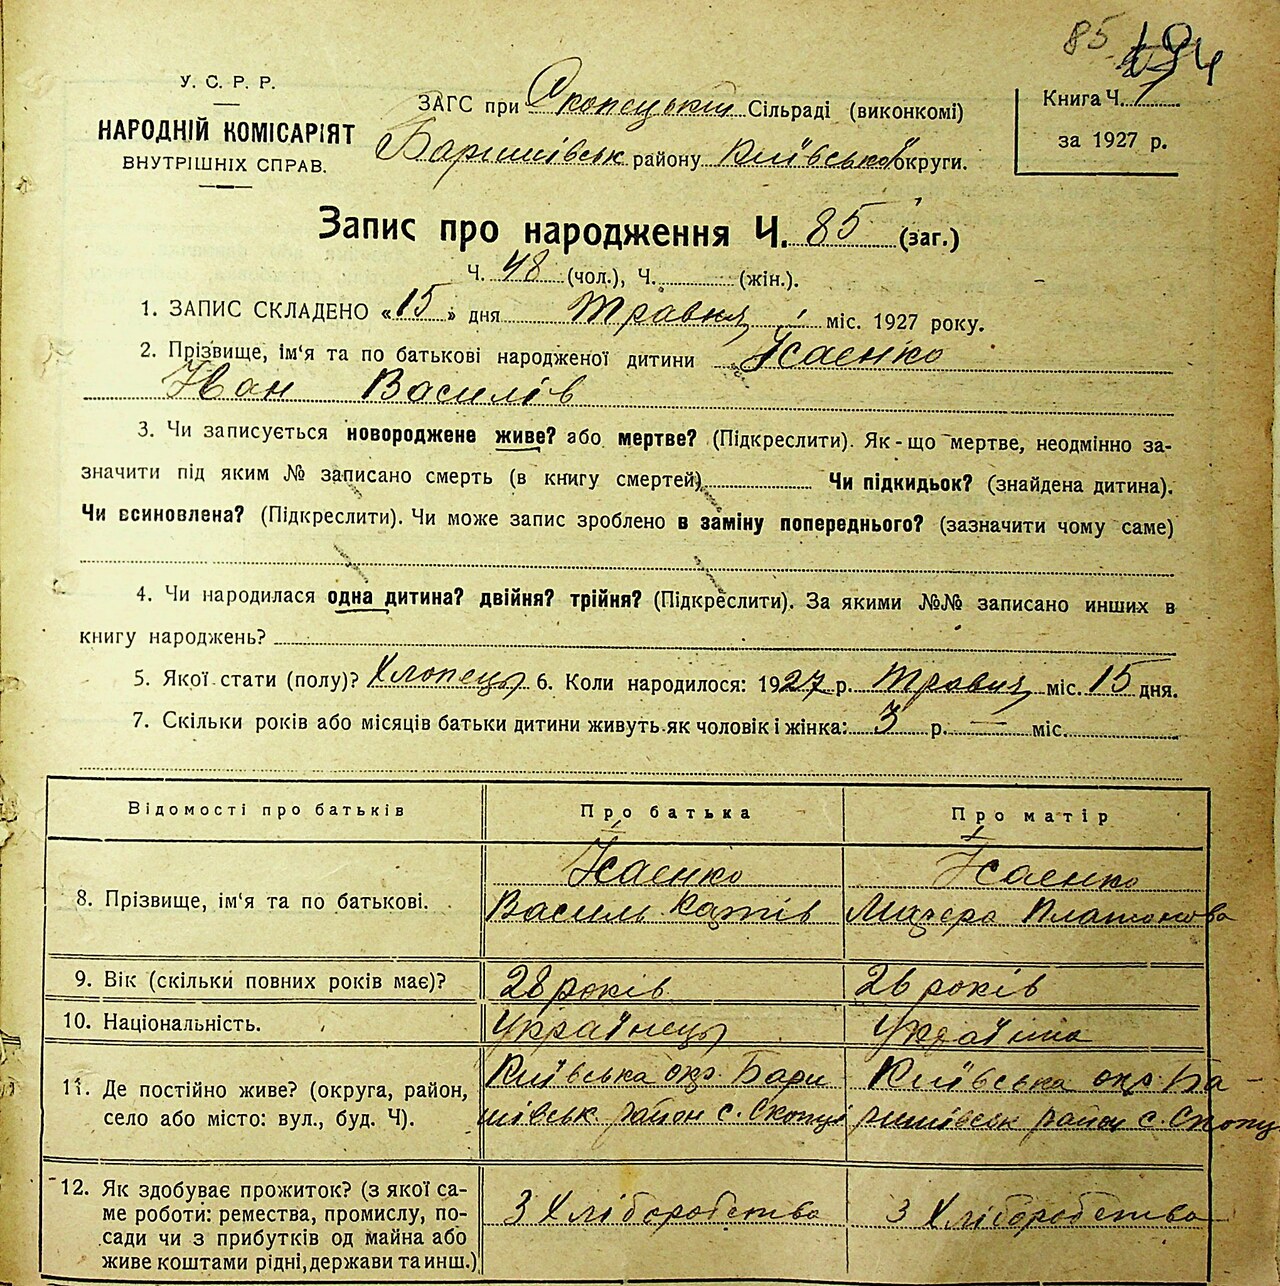 85
У. С. Р. Р.
НАРОДНІЙ КОМІСАРІЯТ
ВНУТРІШНІХ СПРАВ.
ЗАГС при Скопецькій Сільраді (виконкомі)
Баришівськ району Київської округи.
Книга Ч.
за 1927 р.
Запис про народження Ч. 85 (заг.)
Ч. 48 (чол.), Ч. (жін.).
1. ЗАПИС СКЛАДЕНО «15» дня Травня міс. 1927 року.
2. Прізвище, ім'я та по батькові народженої дитини Ісаєнко
Іван Василів
3. Чи записується новороджене живе? або мертве? (Підкреслити). Як-що мертве, неодмінно за-
значити під яким № записано смерть (в книгу смертей) Чи підкидьок? (знайдена дитина).
Чи всиновлена? (Підкреслити). Чи може запис зроблено в заміну попереднього? (зазначити чому саме)
4. Чи народилася одна дитина? двійня? трійня? (Підкреслити). За якими №№ записано инших в
книгу народжень?
5. Якої стати (полу)? Хлопець 6. Коли народилося: 1927 р. Травня міс. 15 дня.
7. Скільки років або місяців батьки дитини живуть як чоловік і жінка: 3 р. — міс.
Відомості про батьків
Про батька
Про матір
8. Прізвище, ім'я та по батькові.
Ісаєнко
Василь
Ісаєнко
Платонова
9. Вік (скільки повних років має)?
28 років
26 років
10. Національність.
Українець
Українка
11. Де постійно живе? (округа, район,
село або місто: вул., буд. Ч).
Київська окр. Бари
шівськ район с. Скопці
Київська окр. Ба-
ришівськ район с. Скопц
12. Як здобуває прожиток? (з якої са-
ме роботи: ремества, промислу, по-
сади чи з прибутків од майна або
живе коштами рідні, держави та инш.)
З Хліборобства
З Хліборобства